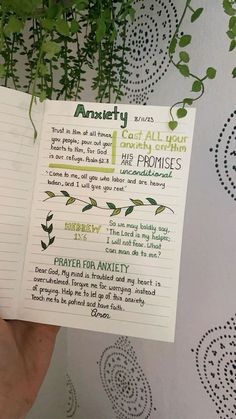 Anxiety
8/11/23
Trust in Him at all times,
you people; pour out your
hearts to him, for God
is our refuge. Psalm 62:8
Cast ALL your
anxiety on Him
HIS ARE PROMISES
unconditional
"Come to me, all you who labor and are heavy
laden, and I will give you rest."
HEBREW
13:6
So we may boldly say:
"The Lord is my helper;
I will not fear. What
can man do to me?
PRAYER FOR ANXIETY
Dear God, My mind is troubled and my heart is
overwhelmed. Forgive me for worrying instead
of praying. Help me to let go of this anxiety.
Teach me to be patient and have faith.
Amen